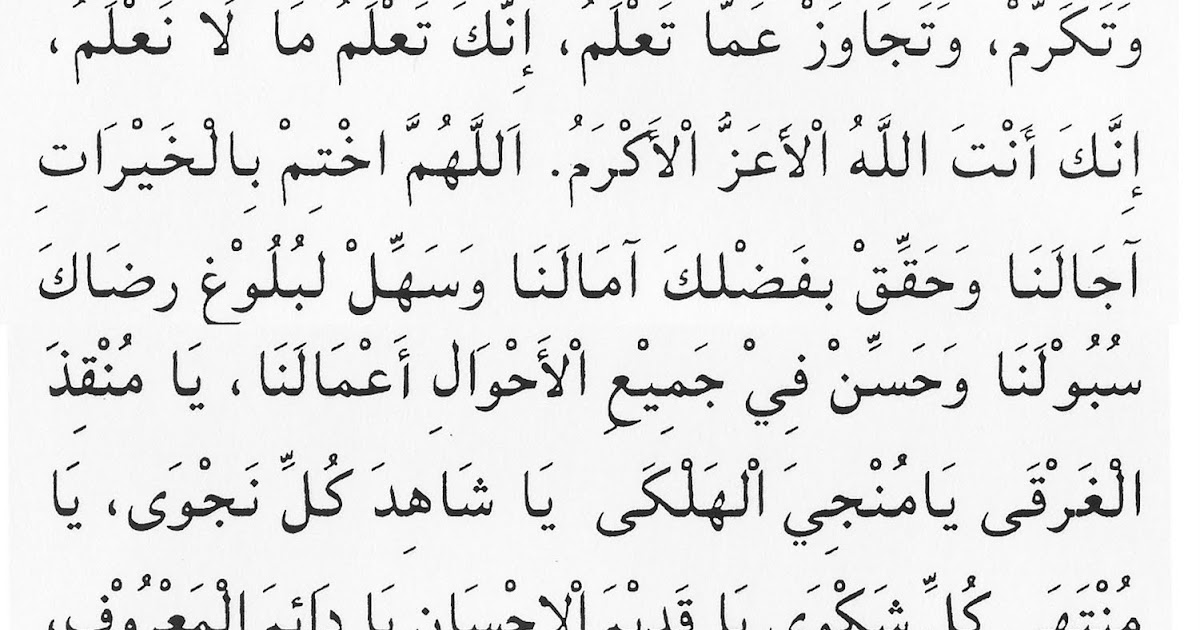 وَتَكَرَّمْ، وَتَجَاوَزْ عَمَّا تَعْلَمُ، إِنَّكَ تَعْلَمُ مَا لَا نَعْلَمُ،
إِنَّكَ أَنْتَ اللَّهُ اْلأَعَزُّ اْلأَكْرَمُ. اَللَّهُمَّ اخْتِمْ بِالْخَيْرَاتِ
آجَالَنَا وَحَقِّقْ بفَضْلكَ آمَالَنَا وَسَهِّلْ لبُلُوْغ رضَاكَ
سُبُوْلَنَا وَحَسِّنْ فِيْ جَمِيْعِ اْلأَحْوَالِ أَعْمَالَنَا، يَا مُنْقِذَ
الْغَرْقَى يَامُنْجِيَ الْهَلْكَى يَا شَاهِدَ كُلِّ نَجْوَى، يَا
مُنْتَهَى كُلِّ شَكْوَى يَا قَدِيْمَ اْلإِحْسَانِ يَا دَائِمَ الْمَعْرُوْفِ،